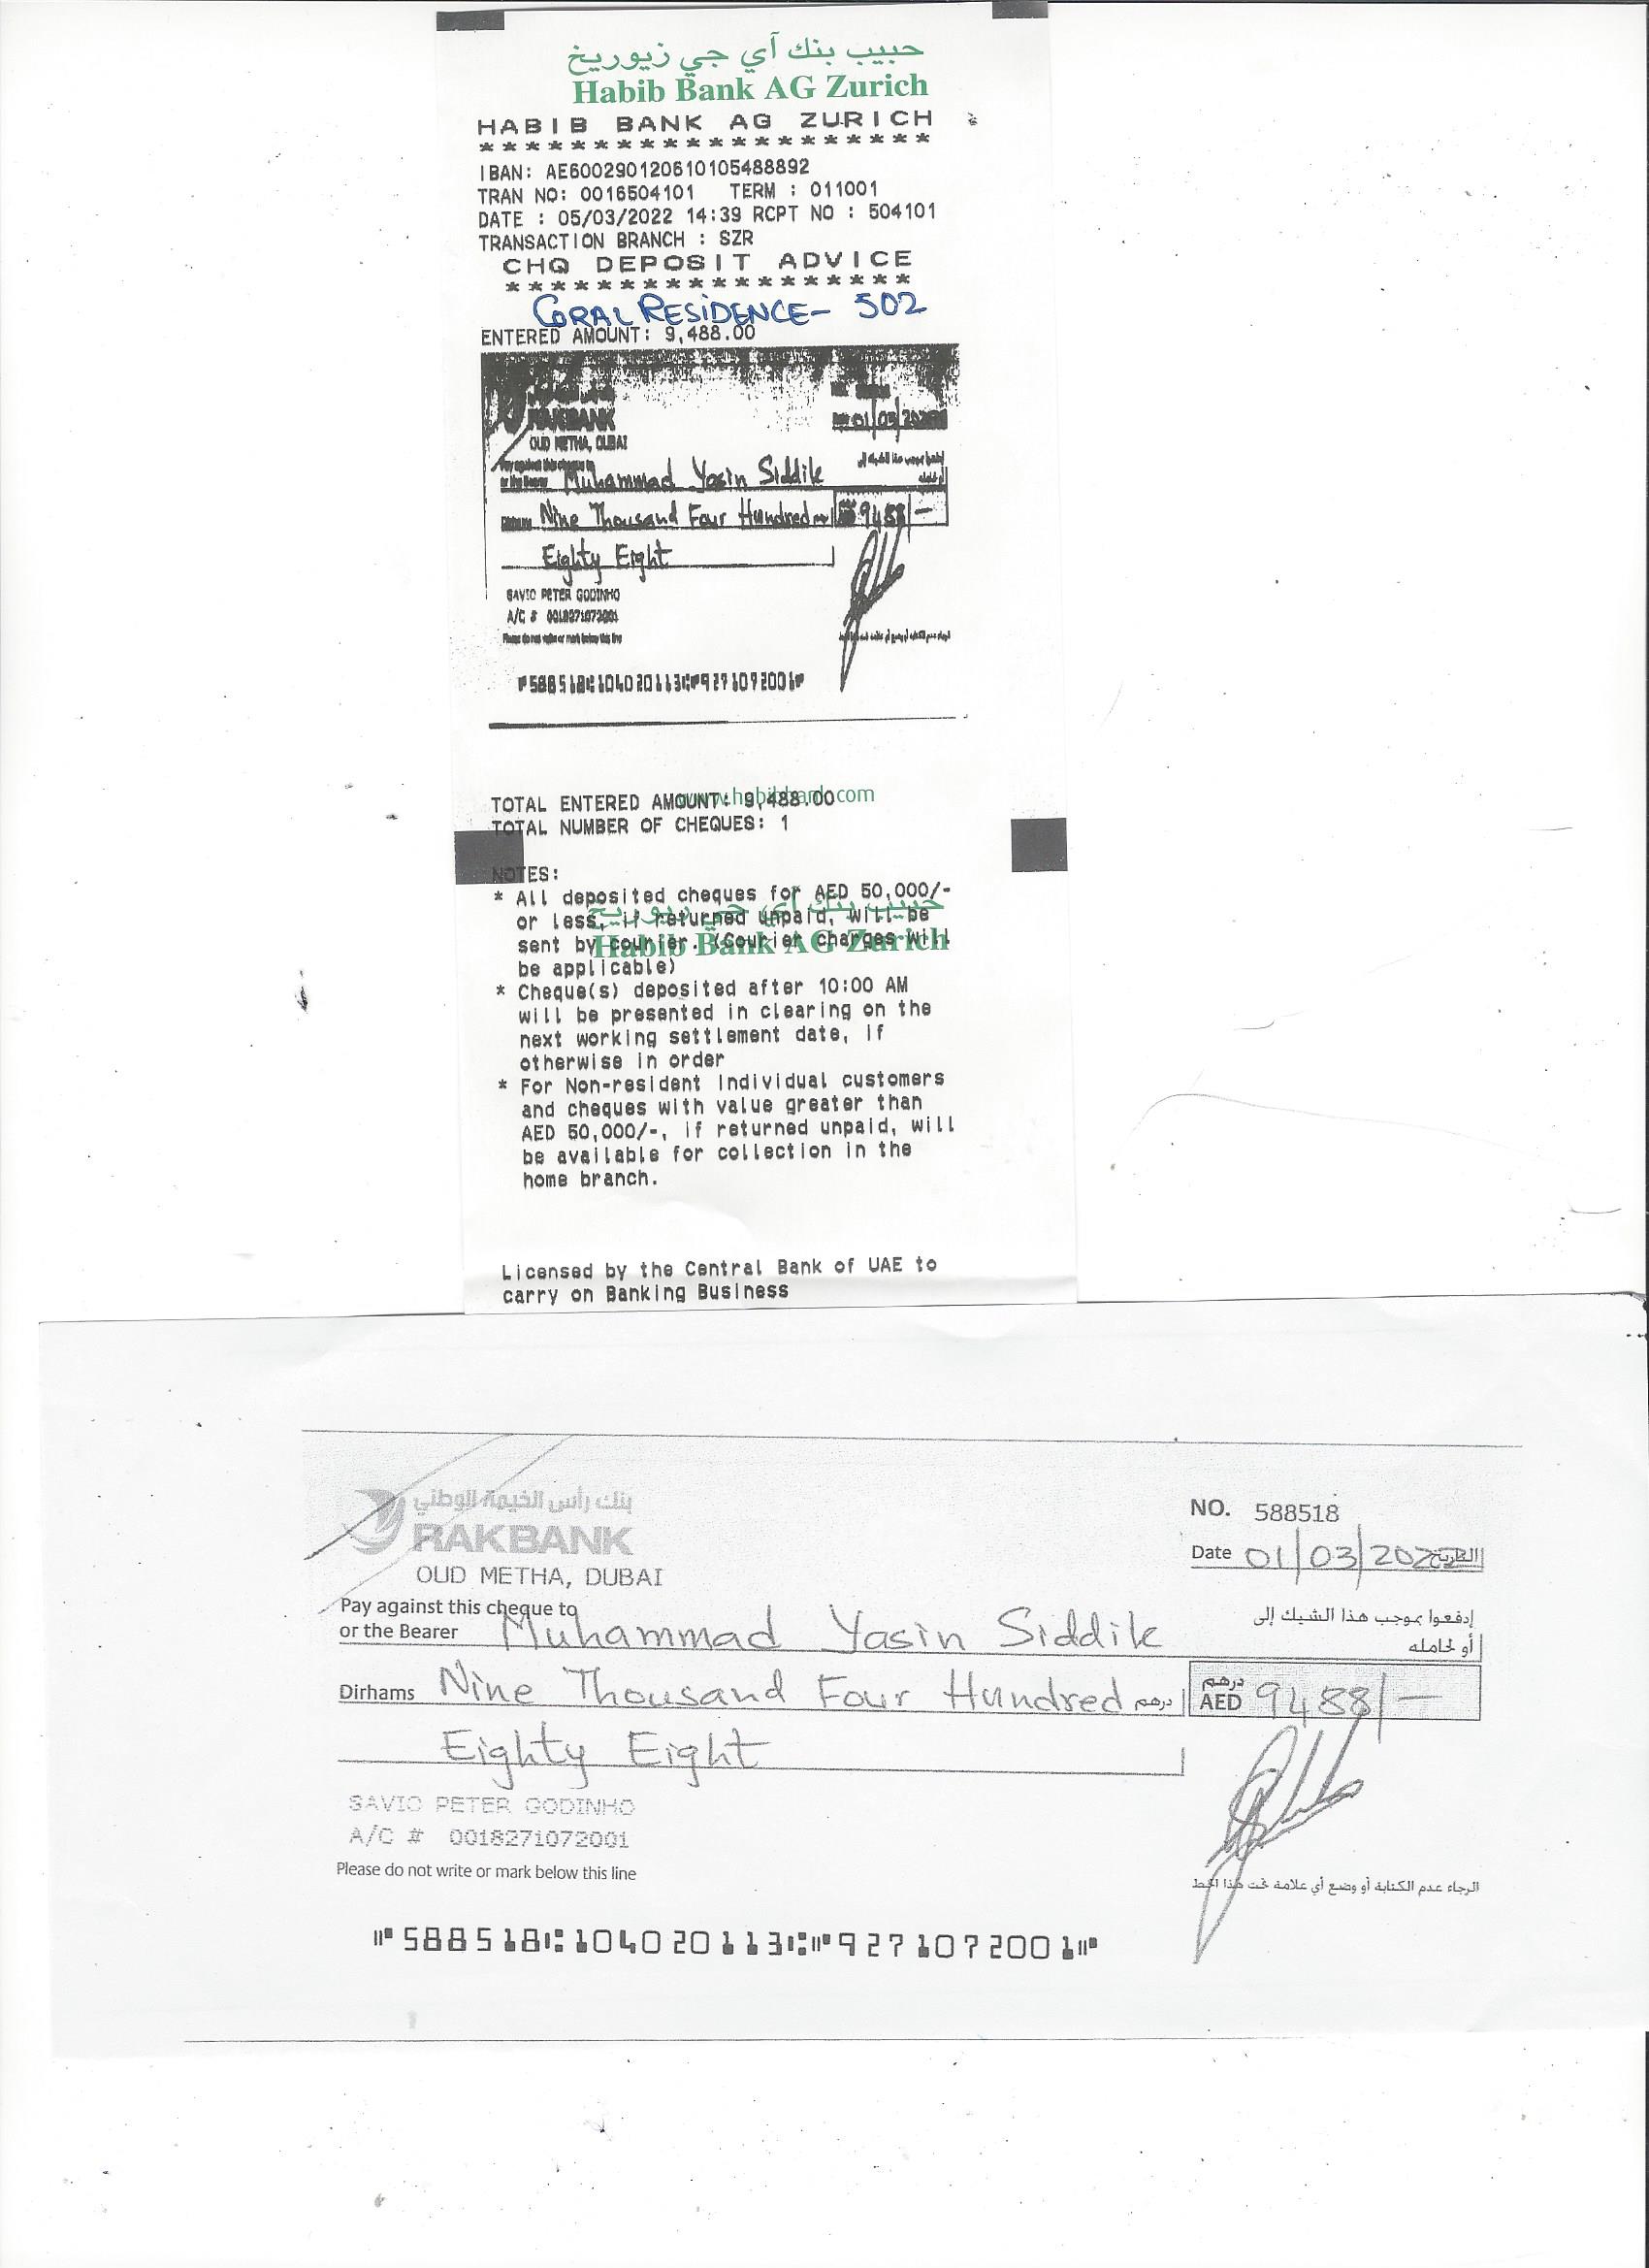 حبيب بنك آي جي زيوريخ
Habib Bank AG Zurich
HABIB BANK AG ZURICH
********************
IBAN: AE600290120610105488892
TRAN NO: 0016504101 TERM : 011001
DATE : 05/03/2022 14:39 RCPT NO : 504101
TRANSACTION BRANCH : SZR
CHQ DEPOSIT ADVICE
******************
CORAL RESIDENCE- 502
ENTERED AMOUNT: 9,488.00
RAKBANK
01/03/2022
OUD METHA, DUBAI
Pay against this cheque to
or the Bearer Muhammad Yasin Siddik
Nine Thousand Four Hundred 9488/-
Eighty Eight
SAVIO PETER GODINHO
A/C # 0018271072001
Please do not write or mark below this line
⑈588518⑆104020113⑆⑈9271072001⑈
TOTAL ENTERED AMOUNT: 9,488.00
www.habibbank.com
TOTAL NUMBER OF CHEQUES: 1
NOTES:
* All deposited cheques for AED 50,000/-
or less, if returned unpaid, will be
حبيب بنك آي جي زيوريخ
sent by courier. (Courier charges will
Habib Bank AG Zurich
be applicable)
* Cheque(s) deposited after 10:00 AM
will be presented in clearing on the
next working settlement date, if
otherwise in order
* For Non-resident Individual customers
and cheques with value greater than
AED 50,000/-, if returned unpaid, will
be available for collection in the
home branch.
Licensed by the Central Bank of UAE to
carry on Banking Business
بنك رأس الخيمة الوطني
RAKBANK
NO. 588518
OUD METHA, DUBAI
Date 01/03/2022 التاريخ
Pay against this cheque to إدفعوا بموجب هذا الشيك إلى
or the Bearer Muhammad Yasin Siddik أو لحامله
Dirhams Nine Thousand Four Hundred درهم درهم AED 9488/-
Eighty Eight
SAVIO PETER GODINHO
A/C # 0018271072001
Please do not write or mark below this line الرجاء عدم الكتابة أو وضع أي علامة تحت هذا الخط
⑈588518⑆104020113⑆⑈9271072001⑈